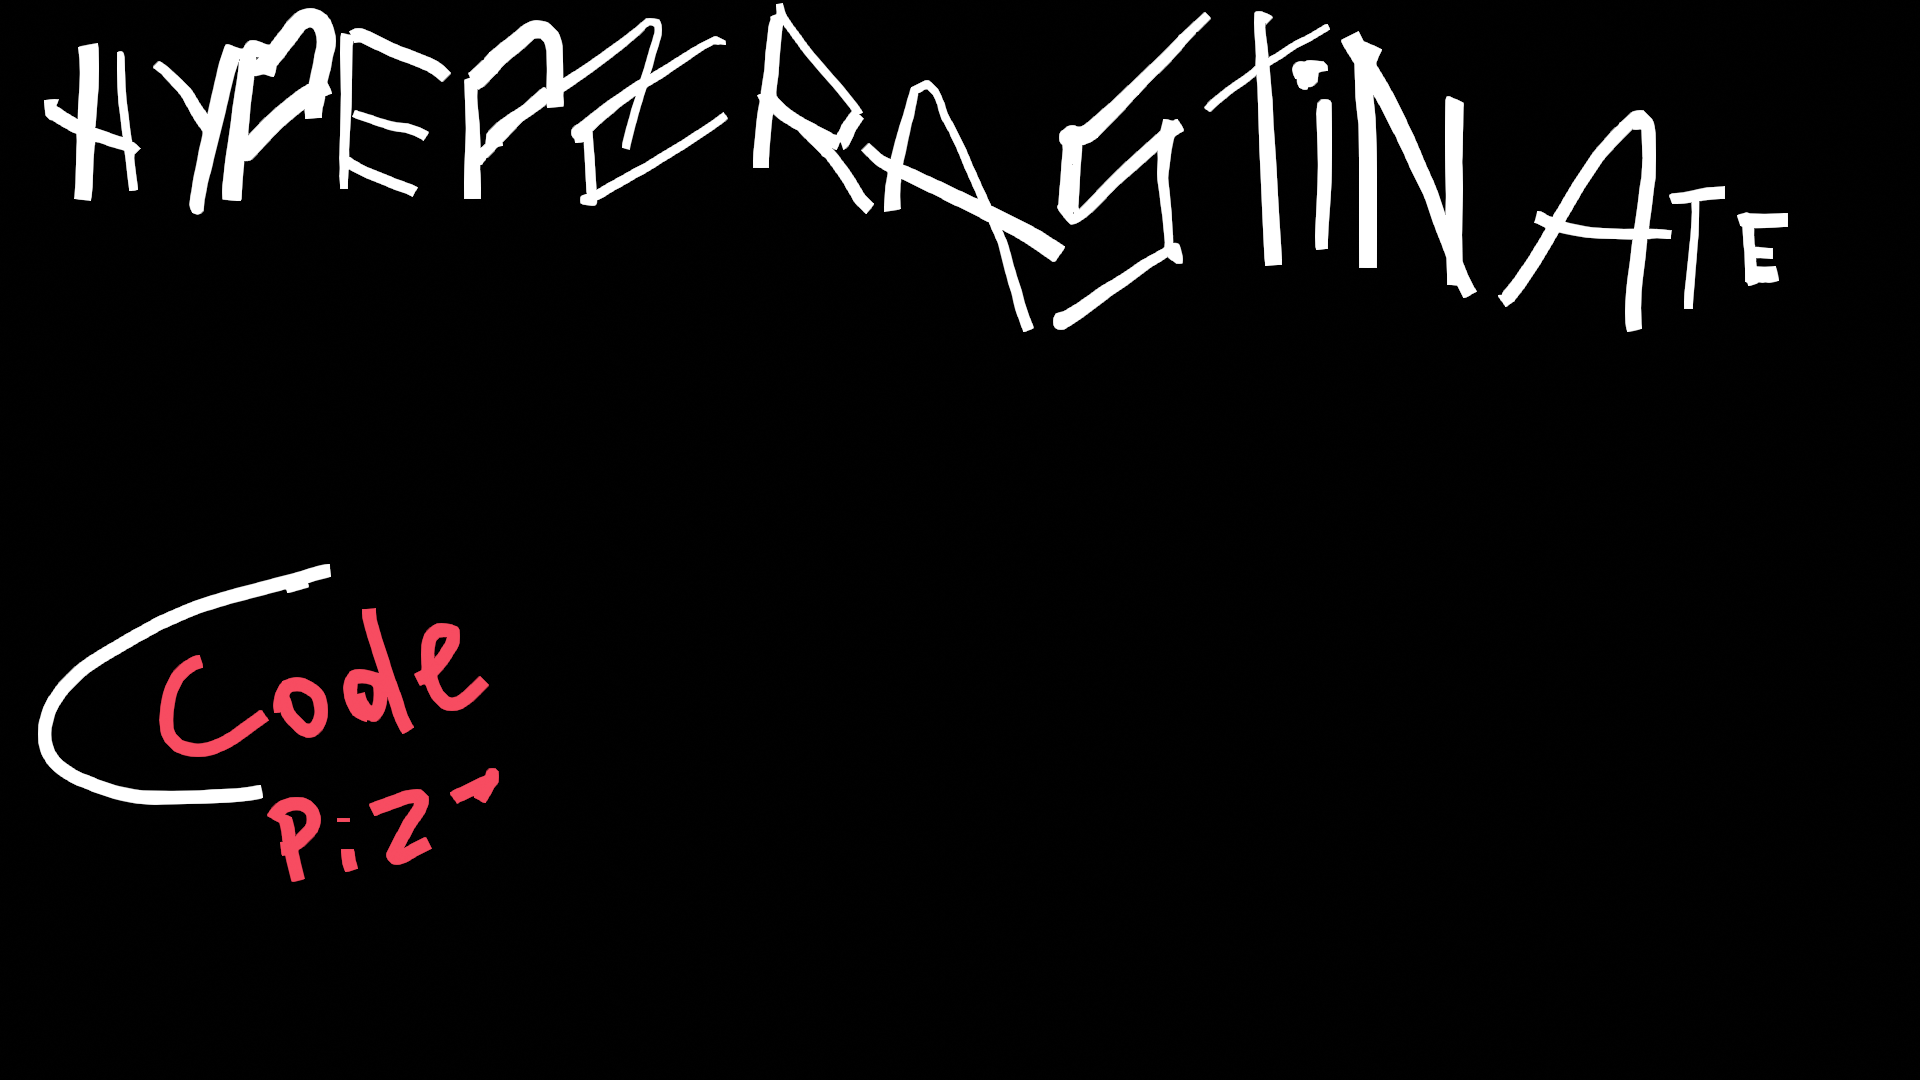 HYPERCRASTiNATE
Code